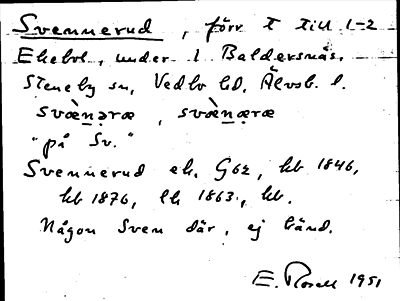 Svennerud, förr t till 1-2
Ekebol, under 1 Baldersnäs.
Steneby sn, Vedbo hd, Älvsb. l.
svὰenəræ, svὰenæræ
"på Sv."
Svennerud ek. G62, kb 1846,
kb 1876, lh 1863, kb.
Någon Sven där, ej känd.
E. Rosell 1951